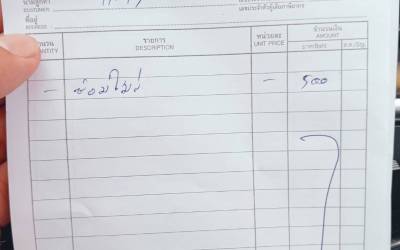 นามลูกค้า
CUSTOMER
เลขประจำตัวผู้เสียภาษีอากร
ที่อยู่
ADDRESS
จำนวน รายการ หน่วยละ จำนวนเงิน
QUANTITY DESCRIPTION UNIT PRICE AMOUNT
บาท/Baht ส.ต./Stg.
— ซ่อมใบเร่ — 500